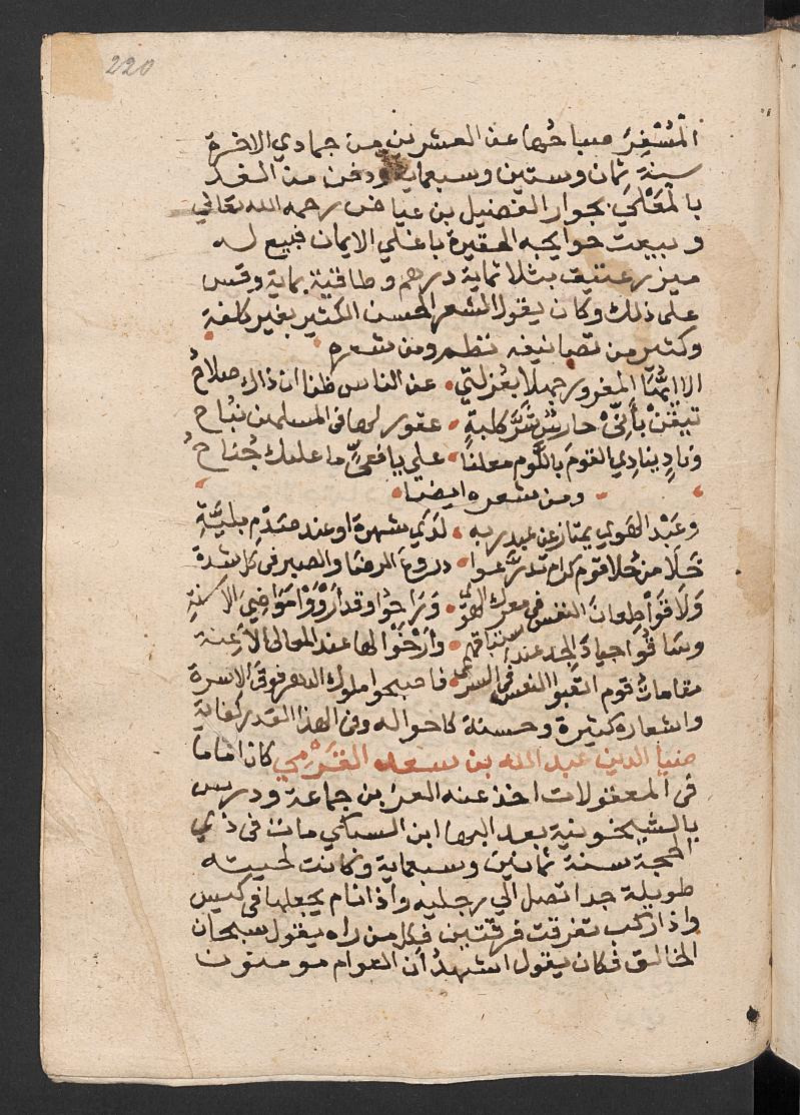 220
المُسْفِرَ صباحُها عن العشرين من جمادي الاخرة
سنة ثمان وستين وسبعماية ودفن من الغد
بالمَعْلَى بجوار الفضيل بن عياض رحمه الله تعالي
وبيعت حوايجه الحقيرة باغلي الاثمان فبيع له
ميزر عتيق بثلاثماية درهم وطاقية بماية وقس
علي ذلك وكان يقول الشعر الحسن الكثير بغير كلفة
وكثير من تصانيفه نظم ومن شعره
الا ايهُّا المغرور جهلا بعُزلتي عن الناس ظنا ان ذاك صلاحُ
تيقَّنْ بأنِّي حارسٌ شَرَّ كلبةٍ عقور لها في المسلمين نُباحُ
ونادِ ينادي القومَ باللَّوم معلنا علي يافعيٍّ ما عليك جُناحُ
ومن شعره ايضا
وعَبْد الهوي يمتاز عن عبد ربه لدي شهوة او عند صَدْم بليَّةِ
خَلَا من حُلا قوم كرام تدرَّعوا دروعَ الرضا والصبر في كل شدة
وَلَاقَوْا طِعانَ النفس في معرك الهوَي وَرَاحُوا وقد أرْوَوْا مَواضِيَ الاسنة
وساقُوا جيادَ الجد عند استباقهم وأَرْخَوْا لها عند المعالي الأعِنة
مقاماتُ قوم اتعبوا النفس في السري فاصبحوا ملوك الدهر فوق الاسرة
واشعاره كثيرة وحسنة كاحواله وفي هذا القدر كفاية
ضيا الدين عبد الله بن سعد القَرْمِي كان اماما
في المعقولات اخذ عنه العز بن جماعة ودرس
بالشيخونية بعد البها ابن السبكي مات في ذي
الحجة سنة ثمانين وسبعماية وكانت لحيته
طويلة جدا تصل الي رجليه واذا نام يجعلها في كيس
واذا ركب تفرقت فرقتين فكل من راه يقول سبحان
الخالق فكان يقول اشهدُ أن العوام مومنون